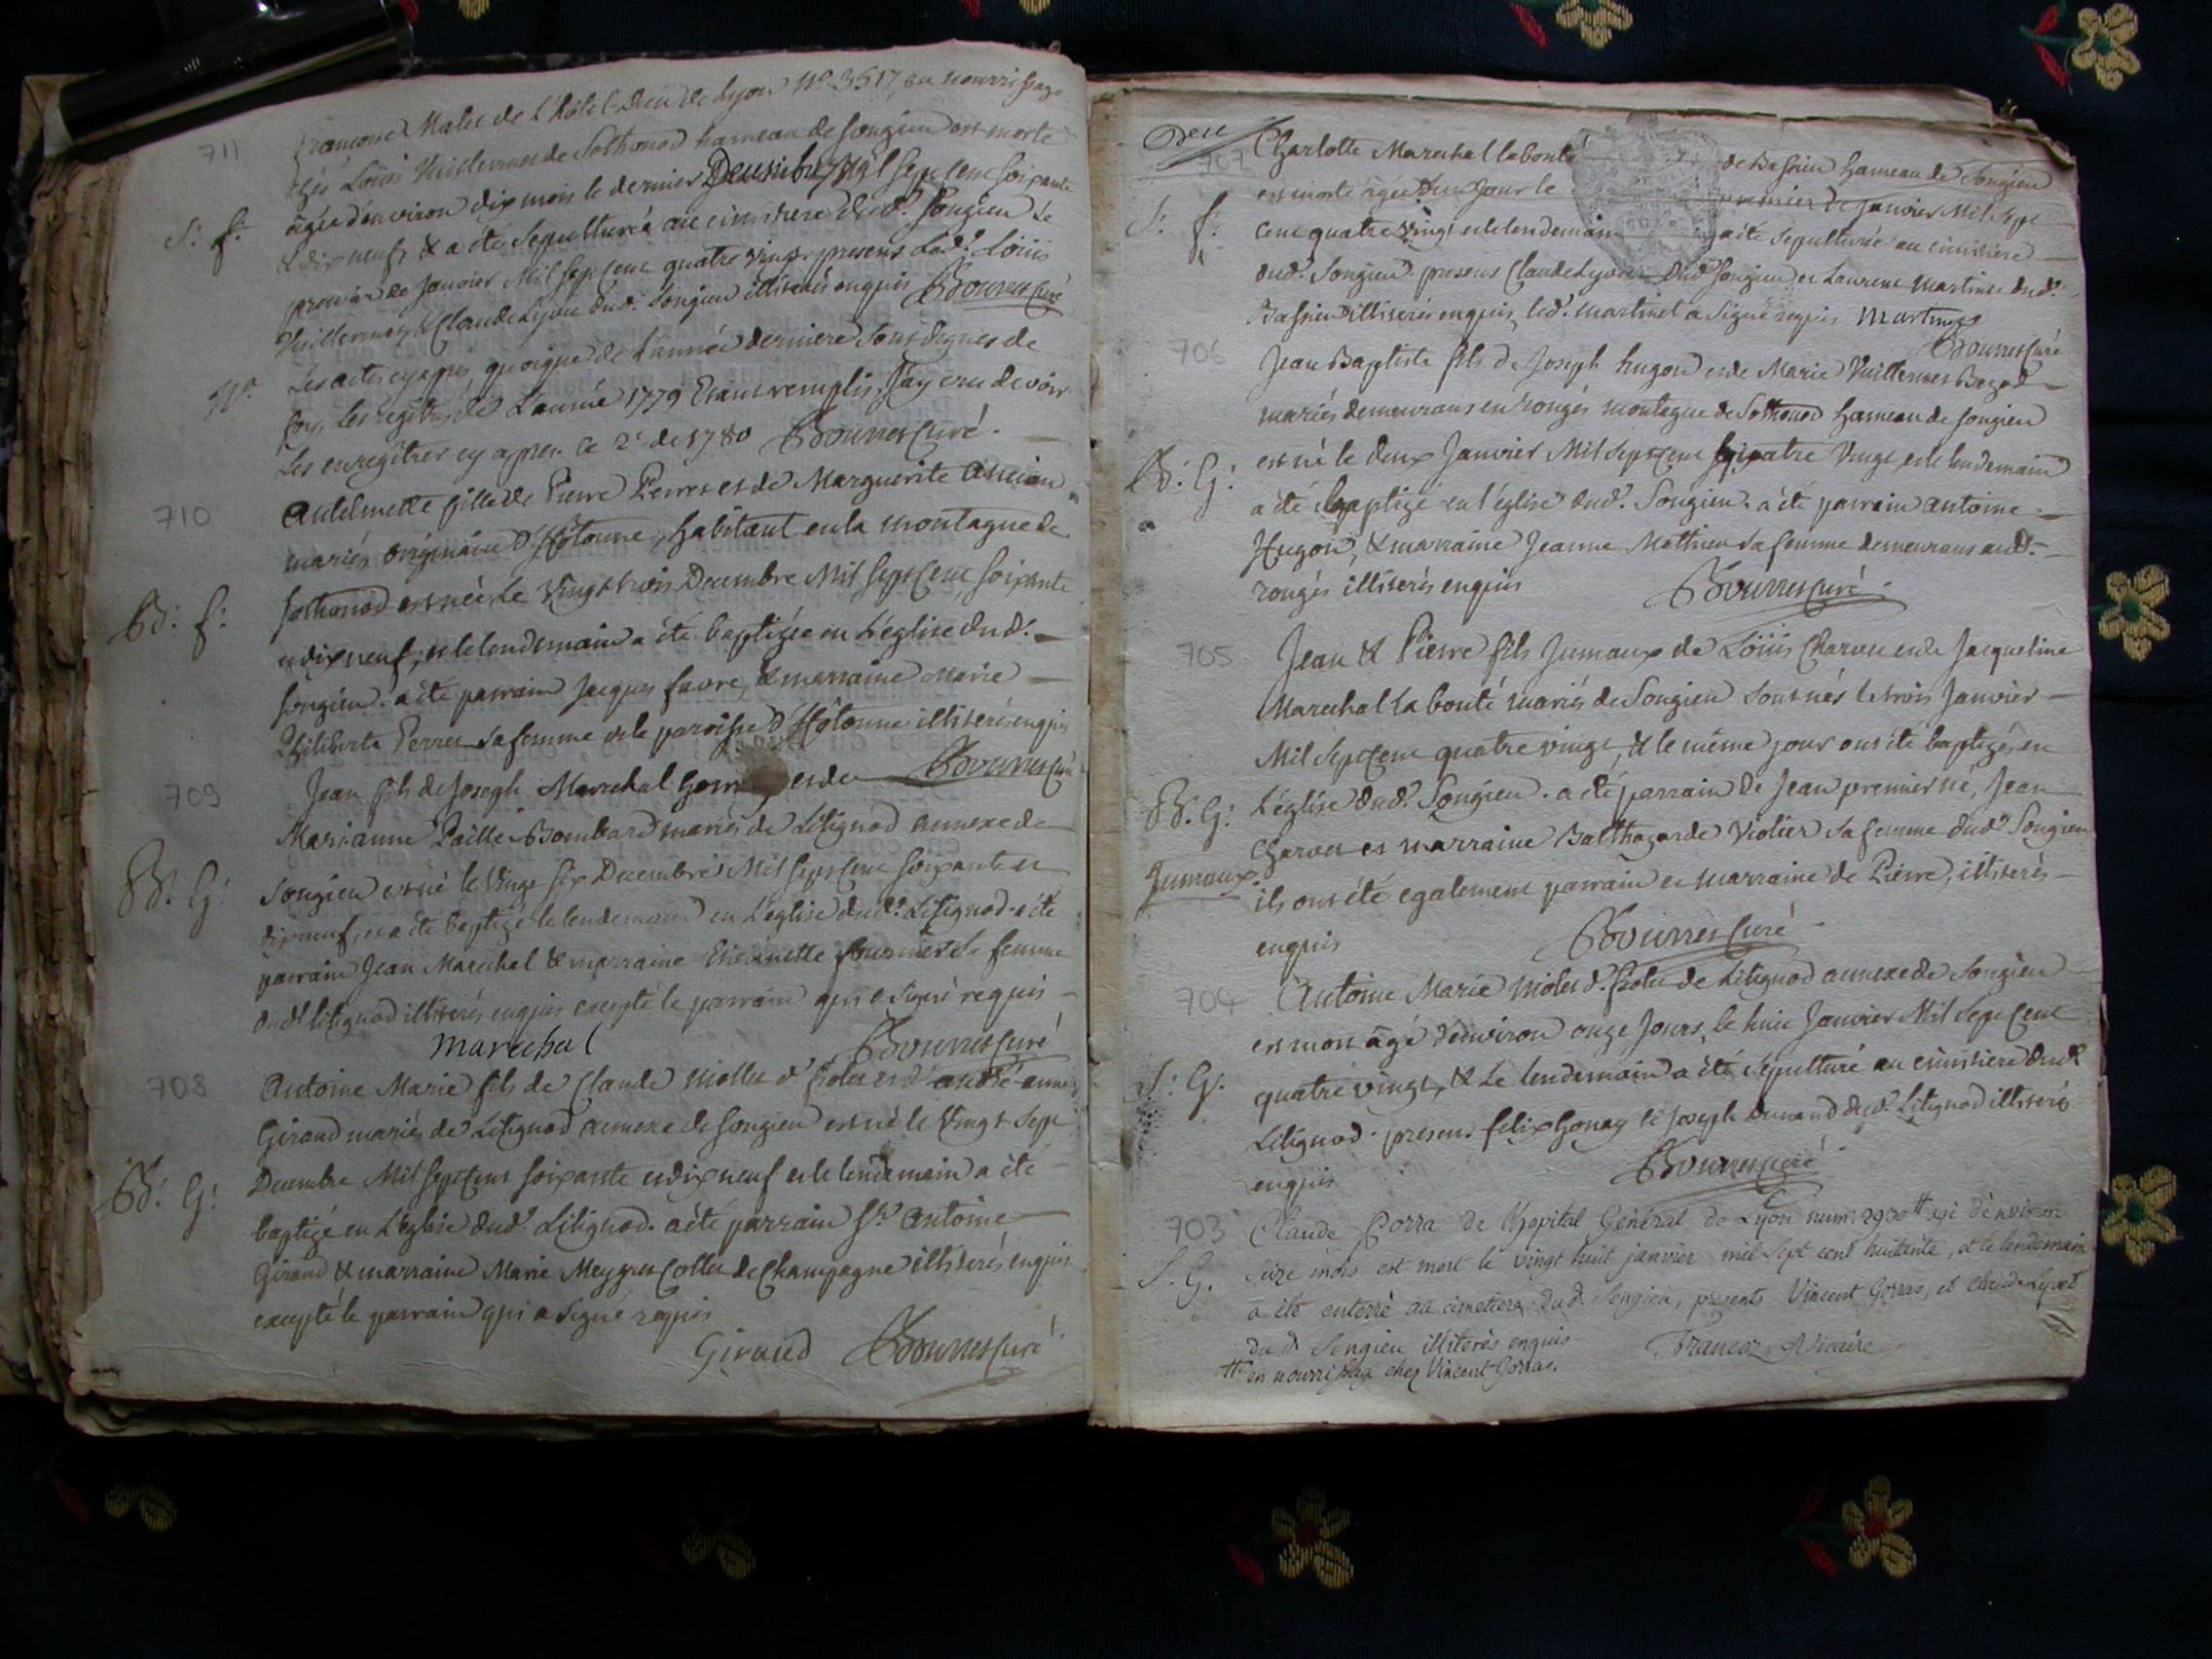 711
françoise Malet de L'hôtel-Dieu de Lyon N.o 3517, en nourrissage
chés Loüis Vuillermet de Sothonod hameau de Songieu est morte
âgée d'environ dix mois le dernier Decembre Mil sept cent soixante
S: f:
& dix neuf, & a été sepulturée au cimetiere dud. Songieu le
premier de Janvier Mil sept cent quatre vingt presens led. Loüis
Vuillermet & Claude Lyvet dud. Songieu illiterés enquis Bourret Curé
N.a
Les actes cy après quoique de l'année derniere sont dignes de
foy, les registres de L'année 1779 Etant remplis, J'ay cru devoir
Les enregitrer cy après. ce 2.e de 1780 Bourret Curé
710
Antelmette fille de Pierre Perret et de Marguerite Ancian
mariés originaires d'Hotonne, habitant en la montagne de
B: f:
Sothonod est née Le Vingt trois Decembre Mil sept Cent soixante
& dix neuf, et le lendemain a été baptizée en L'église dud.
Songieu. a été parrain Jacques favre, & marraine Marie
Philiberte Perret sa femme de la paroisse d'Hotonne illiterés enquis
Bourret Curé
709
Jean fils de Joseph Marechal et de
Marianne Paille Bombard mariés de Lilignod annexe de
B: G:
Songieu est né le Vingt six Decembre Mil sept Cent soixante et
dix neuf, et a été baptizé le lendemain en L'église dud. Lilignod. a été
parrain Jean Marechal & marraine sa femme
dud. Lilignod illiterés enquis excepté le parrain qui a signé requis
Marechal Bourret Curé
708
Antoine Marie fils de Claude Mollet d' et d' anne
Giraud mariés de Lilignod annexe de Songieu est né le Vingt Sept
Decembre Mil sept Cent soixante et dix neuf et le lendemain a été
B: G:
baptizé en L'église dud. Lilignod. a été parrain S.r Antoine
Giraud & marraine Marie Meygret Collet de Champagne illiterés enquis
excepté le parrain qui a signé requis
Giraud Bourret Curé
707
Charlotte Marechal labonté de Bassieu hameau de Songieu
est morte âgée d'un Jour le premier de Janvier Mil sept
S: f:
cent quatre Vingt et le lendemain a été sepulturée au cimetiere
dud. Songieu. presens Claude Lyvet dud. Songieu et Laurent Martinet dud.
Bassieu illiterés enquis, led. Martinet a signé requis Martinet
Bourret Curé
706
Jean Baptiste fils de Joseph hugon et de Marie Vuillermet
mariés demeurans en rongés montagne de Sothonod hameau de Songieu
B: G:
est né le deux Janvier Mil sept Cent quatre Vingt et le lendemain
a été baptizé en l'église dud. Songieu. a été parrain Antoine
Hugon, & marraine Jeanne Mathieu sa femme demeurans aud.
rongés illiterés enquis Bourret Curé
705
Jean & Pierre fils Jumaux de Loüis Charvet et de Jacqueline
Marechal La bonté mariés de Songieu sont nés le trois Janvier
Mil sept Cent quatre vingt, & le même jour ont été baptizés en
B: G:
L'église dud. Songieu. a été parrain de Jean premier né, Jean
Charvet et marraine Balthazarde Violier sa femme dud. Songieu
Jumaux
ils ont été egalement parrain et marraine de Pierre, illiterés
enquis Bourret Curé
704
Antoine Marie Molet d. de Lilignod annexe de Songieu
est mort âgé d'environ onze Jours, le huit Janvier Mil sept Cent
S: G.
quatre vingt, & Le lendemain a été sepulturé au cimetiere dud.
Lilignod. presens felix Gonay et Joseph Dunand dud. Lilignod illiterés
enquis Bourret Curé
703
Claude Porra de l'hopital Général de Lyon num: agé d'environ
S. G.
seize mois est mort le vingt huit janvier mil sept cent huitante, et le lendemain
a été enterré au cimetiere dud. Songieu, presents Vincent Gorras, et Claude Lyvet
du d. Songieu illiterés enquis Francoz Vicaire
tt en nourrissage chez Vincent Gorras.